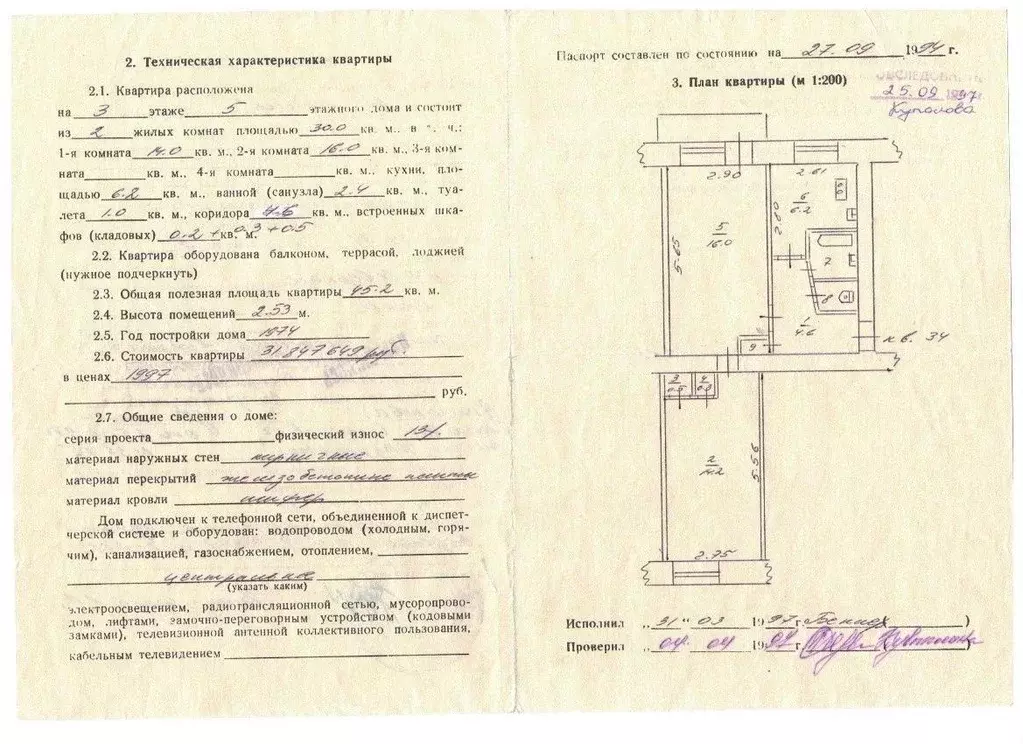 2. Техническая характеристика квартиры
2.1. Квартира расположена
на 3 этаже 5 этажного дома и состоит
из 2 жилых комнат площадью 30.0 кв. м., в т. ч.:
1-я комната 14.0 кв. м., 2-я комната 16.0 кв. м., 3-я ком-
ната кв. м., 4-я комната кв. м., кухни, пло-
щадью 6.2 кв. м., ванной (санузла) 2.4 кв. м., туа-
лета 1.0 кв. м., коридора 4.6 кв. м., встроенных шка-
фов (кладовых) 0.2 + 0.3 + 0.5 кв. м.
2.2. Квартира оборудована балконом, террасой, лоджией
(нужное подчеркнуть)
2.3. Общая полезная площадь квартиры 45.2 кв. м.
2.4. Высота помещений 2.53 м.
2.5. Год постройки дома 1974
2.6. Стоимость квартиры 31 847 649 руб.
в ценах 1997
руб.
2.7. Общие сведения о доме:
серия проекта физический износ 13%
материал наружных стен кирпичные
материал перекрытий железобетонные плиты
материал кровли шифер
Дом подключен к телефонной сети, объединенной к диспет-
черской системе и оборудован: водопроводом (холодным, горя-
чим), канализацией, газоснабжением, отоплением,
центральное
(указать каким)
электроосвещением, радиотрансляционной сетью, мусоропрово-
дом, лифтами, замочно-переговорным устройством (кодовыми
замками), телевизионной антенной коллективного пользования,
кабельным телевидением
Паспорт составлен по состоянию на 27.09 1994 г.
3. План квартиры (м 1:200)
ОБСЛЕДОВ
25.09 1997г.
Купалова
2.90
2.61
6
6.2
2.60
5
16.0
5.65
7
8
1
4.6
9
кв. 34
3
0.5
4
0.3
2
14.2
5.56
2.75
Исполнил „31" 03 1997 г. )
Проверил „04 04 1997 г. )